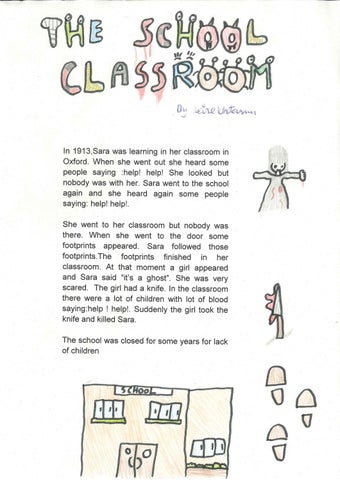 THE SCHOOL
CLASSROOM
By
In 1913,Sara was learning in her classroom in
Oxford. When she went out she heard some
people saying :help! help! She looked but
nobody was with her. Sara went to the school
again and she heard again some people
saying: help! help!.
She went to her classroom but nobody was
there. When she went to the door some
footprints appeared. Sara followed those
footprints.The footprints finished in her
classroom. At that moment a girl appeared
and Sara said "it's a ghost". She was very
scared. The girl had a knife. In the classroom
there were a lot of children with lot of blood
saying:help ! help!. Suddenly the girl took the
knife and killed Sara.
The school was closed for some years for lack
of children
SCHOOL